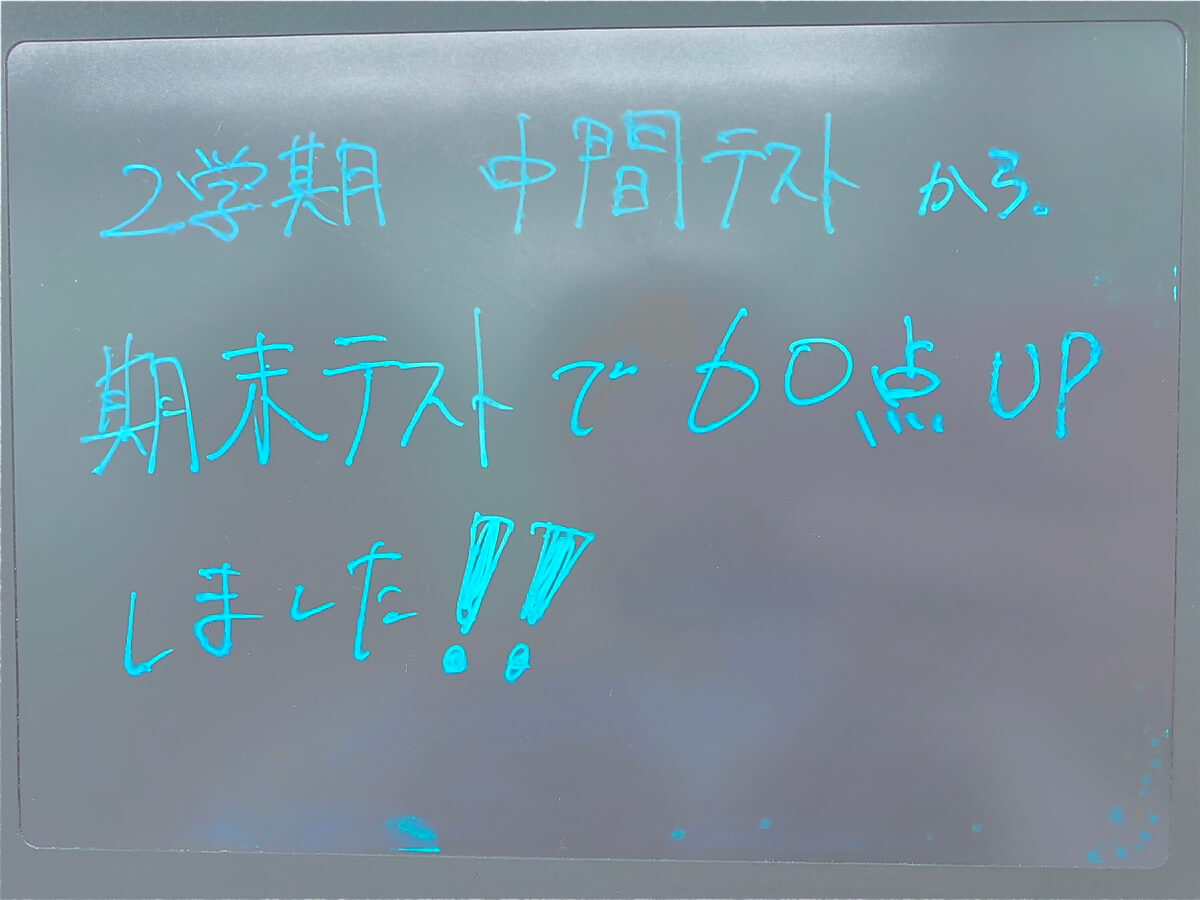 2学期 中間テストから。
期末テストで60点UP
しました!!